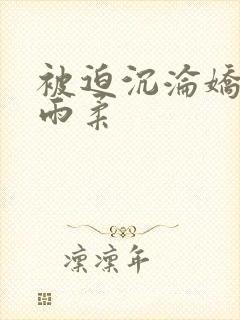 被迫沉淪嬌
雨柔
凛凛年